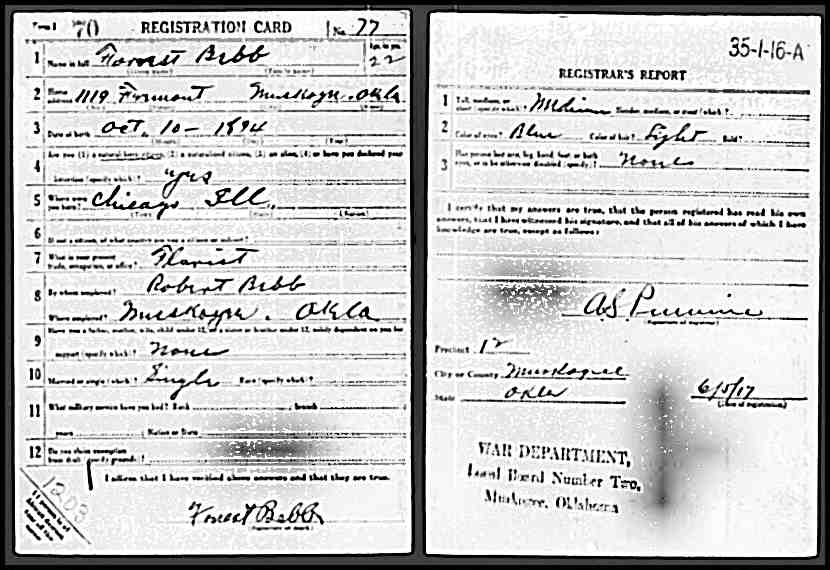 Form 1 70 REGISTRATION CARD No. 77
1 Name in full Forrest Bebb Age, in yrs. 22
(Given name) (Family name)
2 Home address 1119 Fremont Muskogee Okla
3 Date of birth Oct. 10 - 1894
(Month) (Day) (Year)
4 Are you (1) a natural born citizen, (2) a naturalized citizen, (3) an alien, (4) or have you declared your
intention (specify which)? yes
5 Where were you born? Chicago Ill.
(Town) (State) (Nation)
6 If not a citizen, of what country are you a citizen or subject?
7 What is your present trade, occupation, or office? Florist
8 By whom employed? Robert Bebb
Where employed? Muskogee. Okla
9 Have you a father, mother, wife, child under 12, or a sister or brother under 12, solely dependent on you for
support (specify which)? None
10 Married or single (which)? Single Race (specify which)?
11 What military service have you had? Rank branch
years Nation or State
12 Do you claim exemption from draft (specify grounds)?
I affirm that I have verified above answers and that they are true.
1203
Forrest Bebb
35-1-16-A
REGISTRAR'S REPORT
1 Tall, medium, or short (specify which)? Medium Slender, medium, or stout (which)?
2 Color of eyes? Blue Color of hair? Light Bald?
3 Has person lost arm, leg, hand, foot, or both eyes, or is he otherwise disabled (specify)? None
I certify that my answers are true, that the person registered has read his own
answers, that I have witnessed his signature, and that all of his answers of which I have
knowledge are true, except as follows:
(Signature of registrar)
Precinct 12
City or County Muskogee
State Okla 6/5/17
(Date of registration)
WAR DEPARTMENT,
Local Board Number Two,
Muskogee, Oklahoma